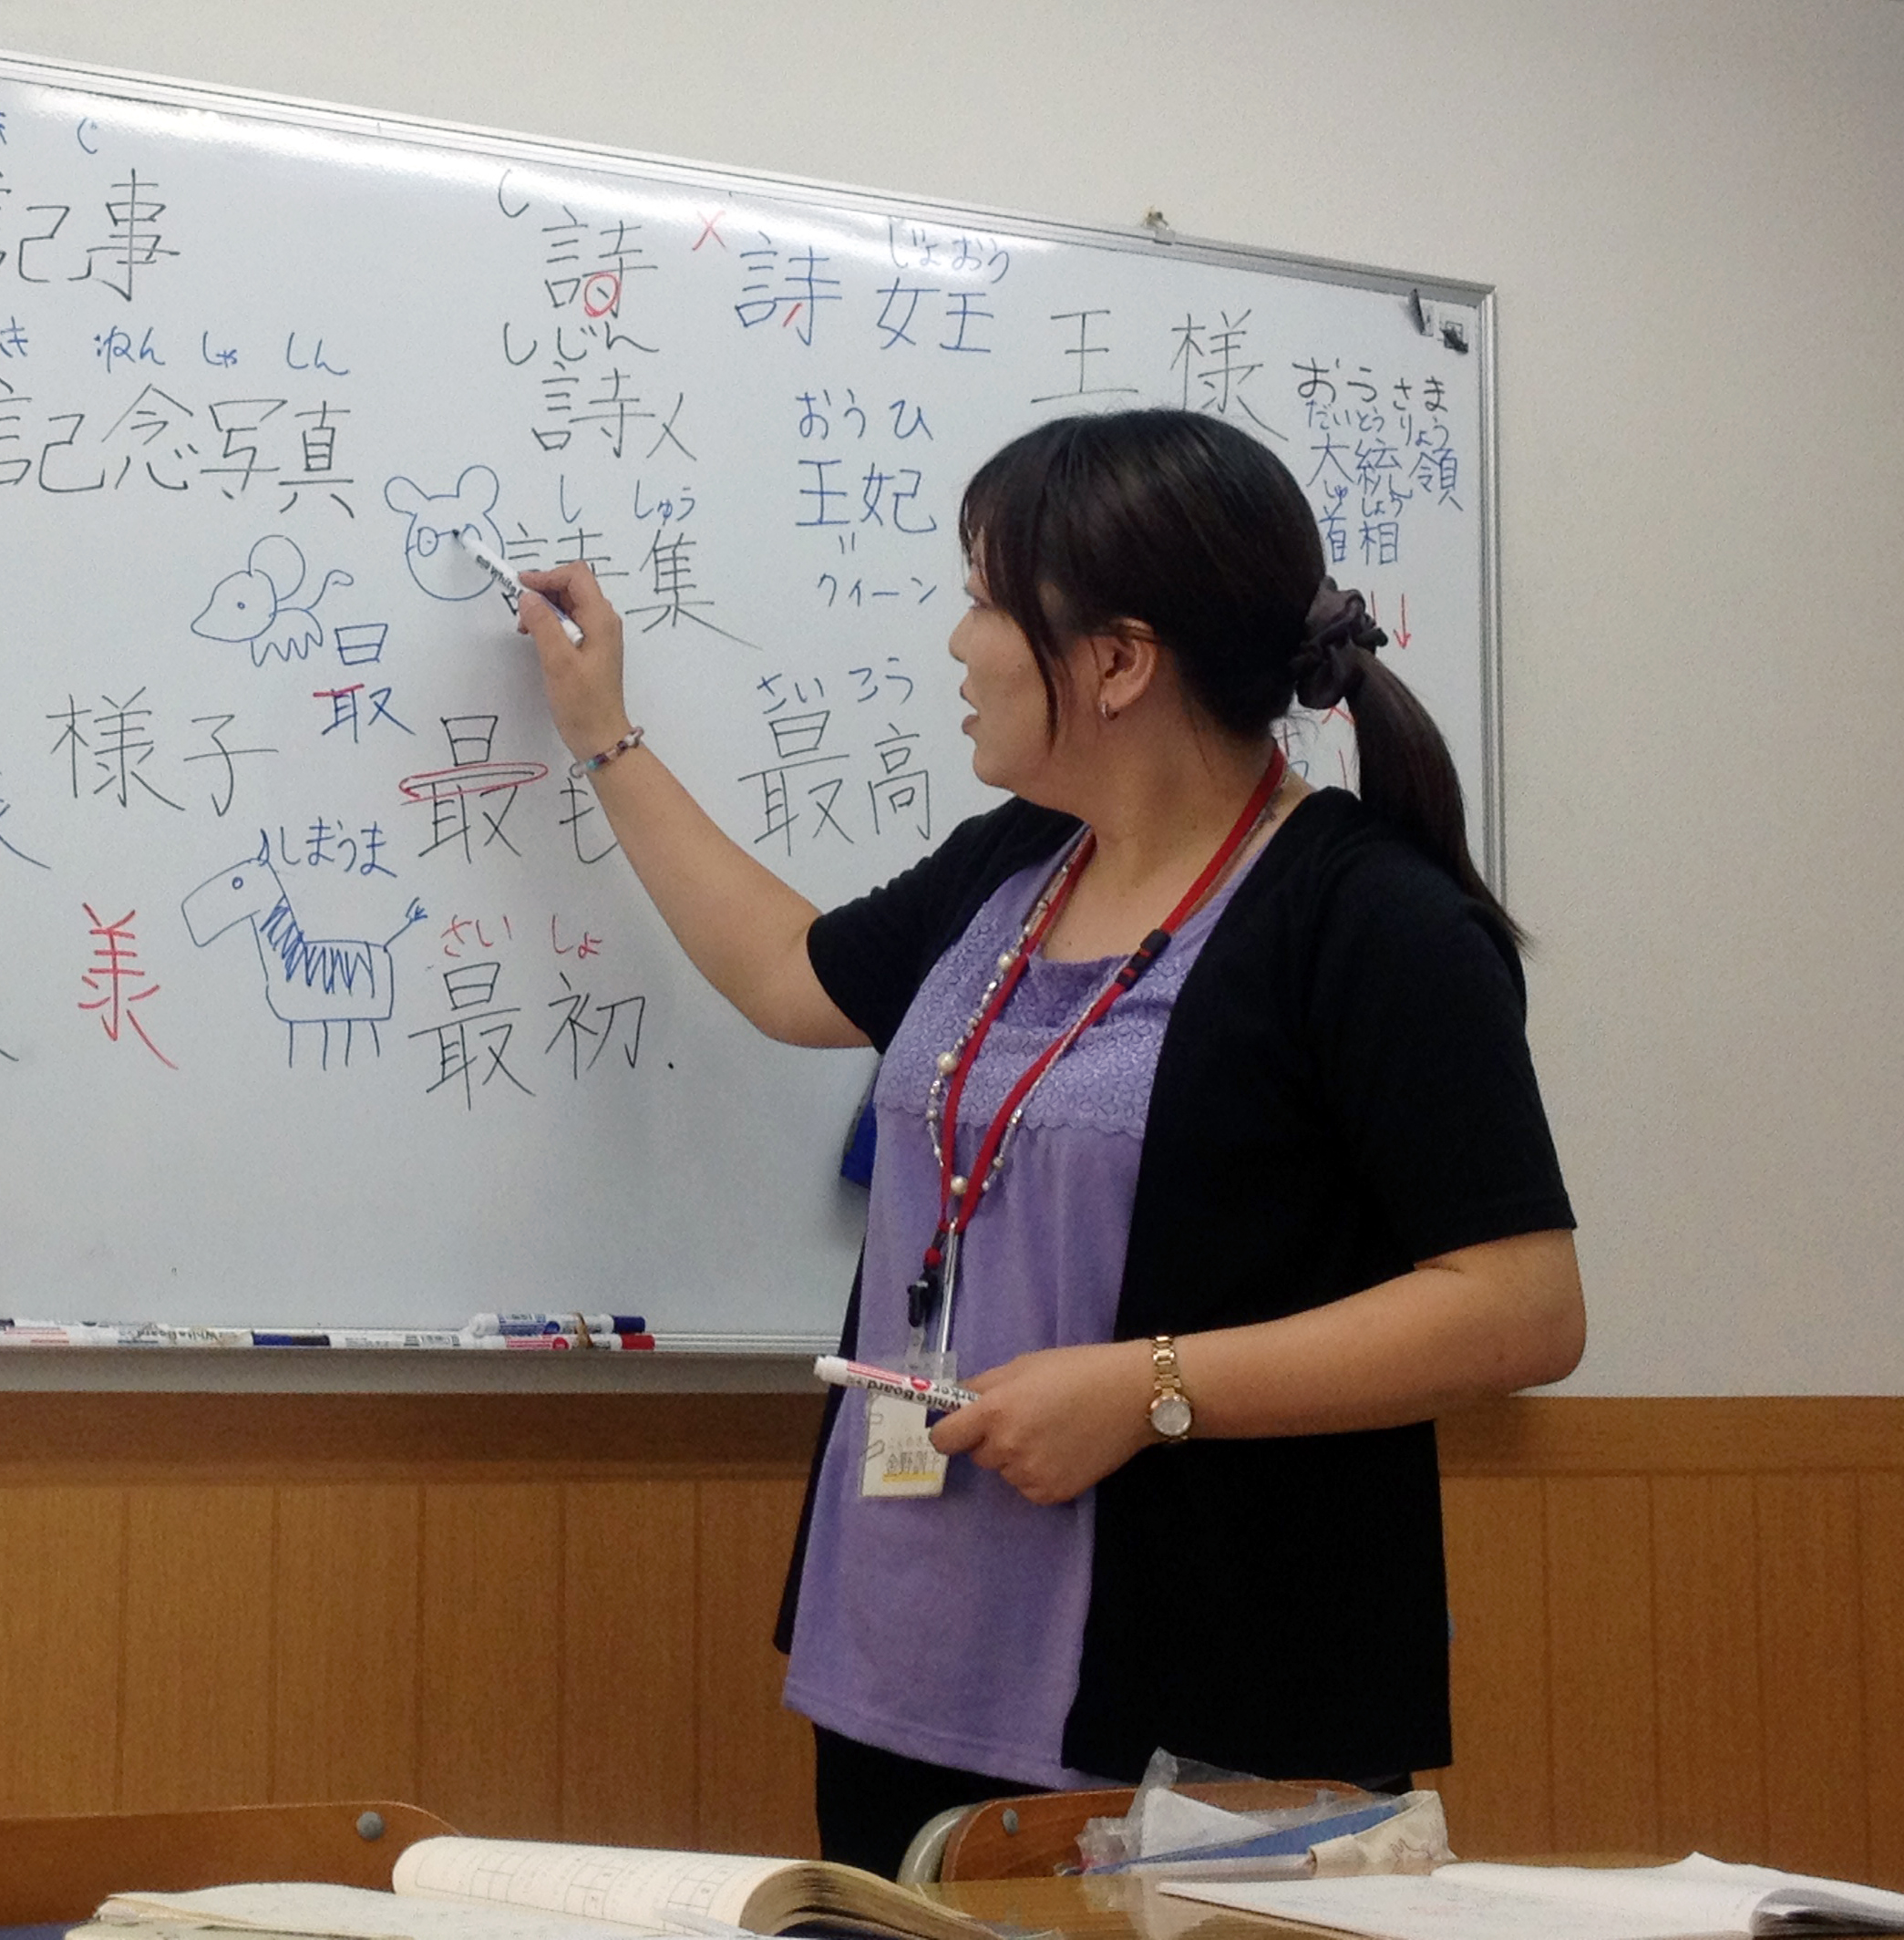 じ
記事
き ねん しゃ しん
記念写真
様子
美
日
取
しまうま
し
詩
しじん
詩人
し しゅう
詩集
最も
さい しょ
最初.
×
詩
じょおう
女王
おうひ
王妃
〃
クイーン
さいこう
最高
王様
おうさま
だいとうりょう
大統領
しゅしょう
首相
WhiteBoard